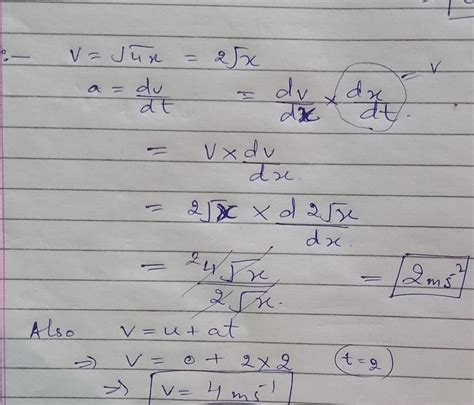 :- V = √4x = 2√x
a = dv/dt = dv/dx × dx/dt. = V
= V × dv/dx.
= 2√x × d 2√x/dx.
= 2 4√x/2√x. = 2 ms⁻²
Also V = u + at
⇒ V = 0 + 2×2 (t=2)
⇒ V = 4 ms⁻¹